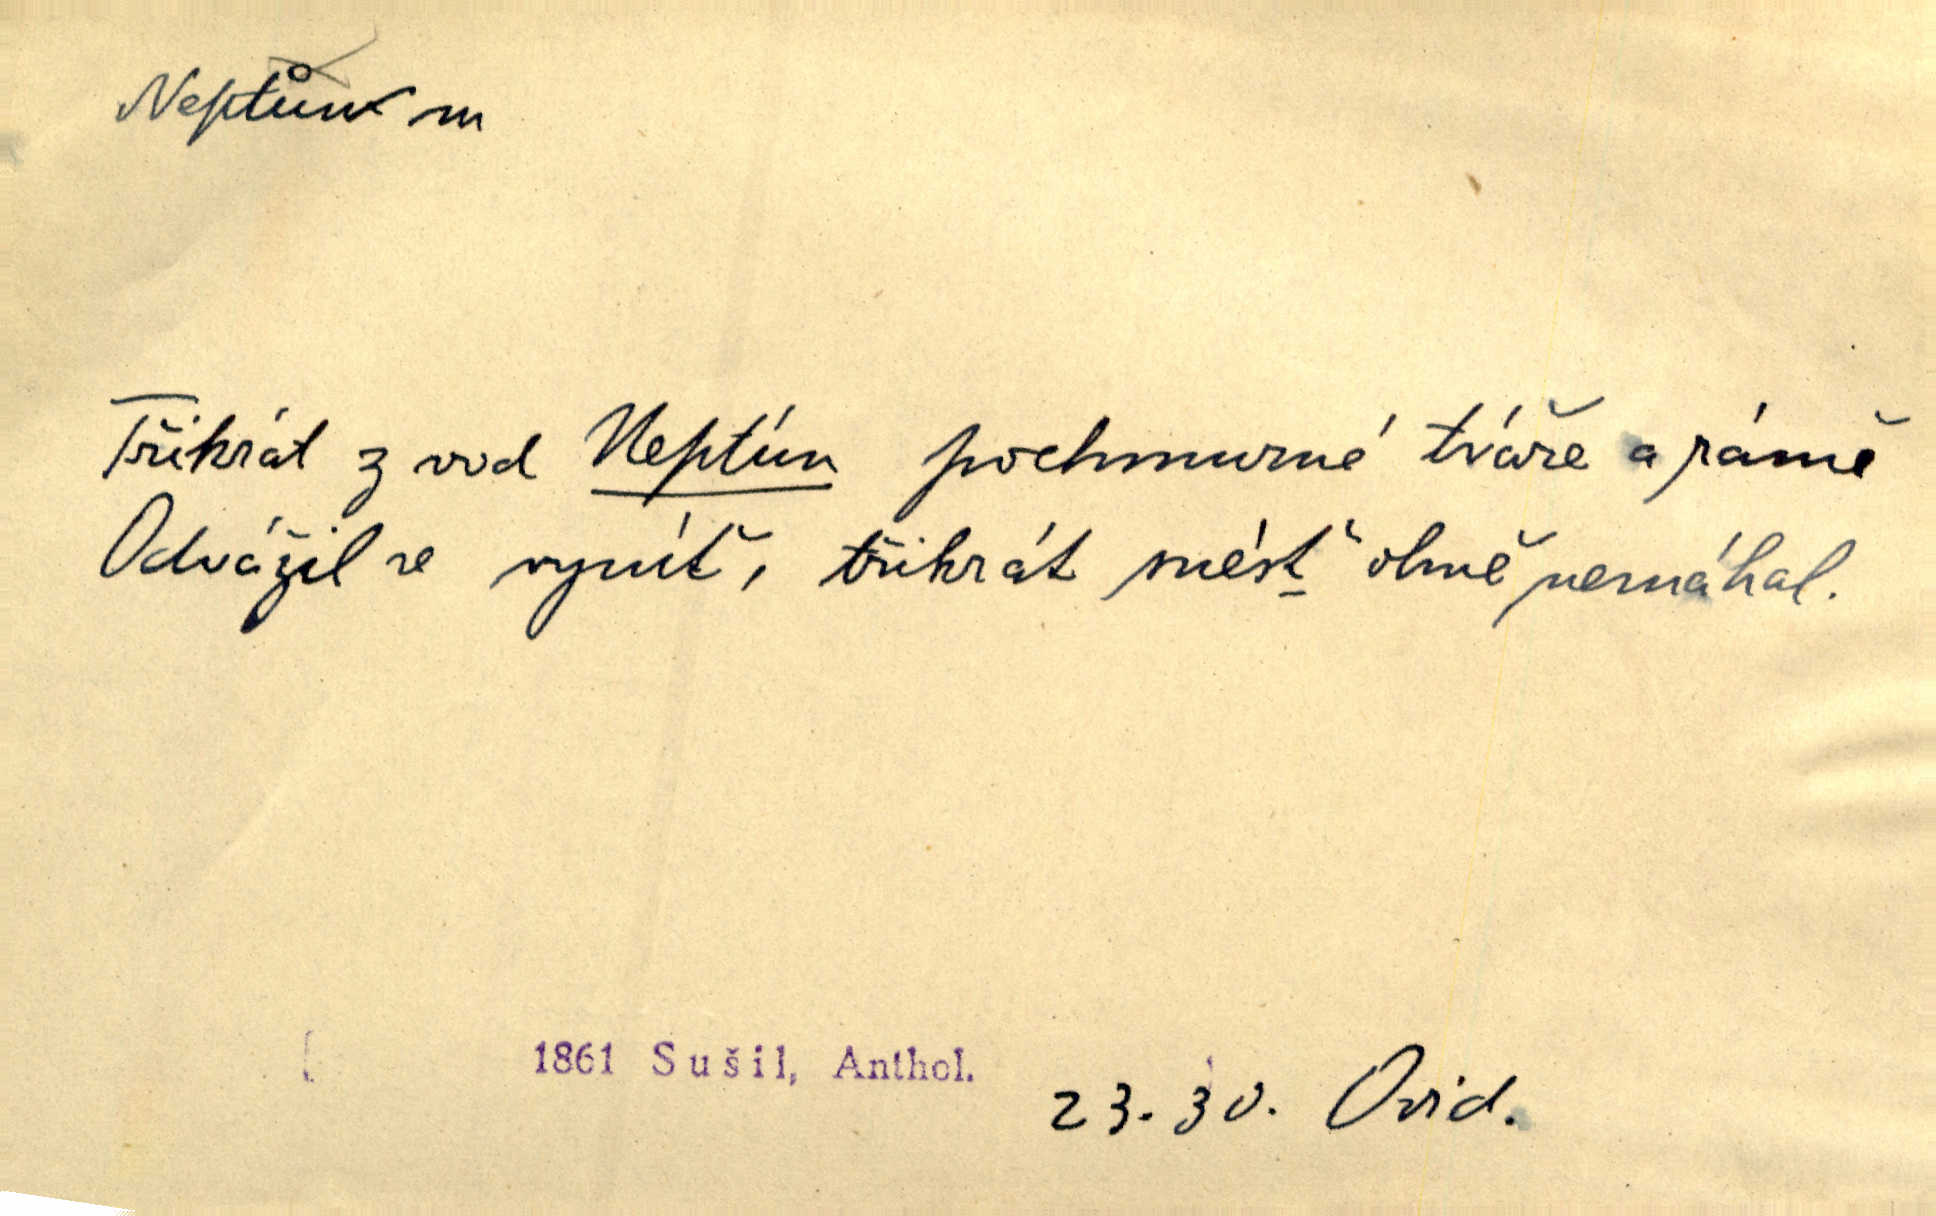 Neptůn m
Třikrát z vod Neptún pochmurné tváře a rámě
Odvážil se vyníť, třikrát snésť ohně nemáhal.
1861 Sušil, Anthol.
23. 30. Ovid.